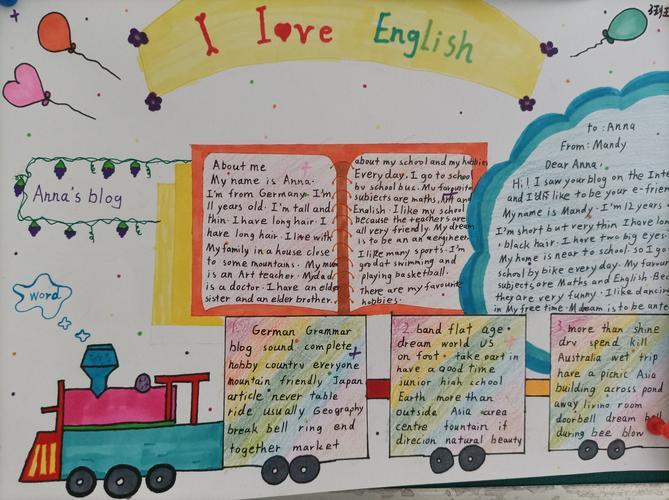 I Love English
Anna's blog
word
About me
My name is Anna.
I'm from Germany. I'm
11 years old. I'm tall and
thin. I have long hair. I
have long hair. I live with
My family in a house close
to some mountains. My mum
is an Art teacher. My dad
is a doctor. I have an elder
sister and an elder brother.
about my school and my hobbies
Every day. I go to school
by school bus. My favourite
subjects are maths, Art and
English. I like my school
because the teachers are
all very friendly. My dream
is to be an an engineer
I like many sports. I'm
good at swimming and
playing basketball.
there are my favourite
hobbies.
to: Anna
From: Mandy
Dear Anna.
Hi! I saw your blog on the Inte
and I like to be your e-frien
My name is Mandy. I'm 12 years
I'm short but very thin I have long
black hair. I have two big eyes.
My home is near to school so I go
school by bike every day. My favour
subjects are Maths and English. Bec
they are very funny. I like dancing
in My free time. M dream is to be
1. German Grammar
blog sound complete
hobby country everyone
mountain friendly Japan
article never table
ride usually Geography
break bell ring end
together market
2. band flat age
dream world US
on foot take part in
have a good time
junior high school
Earth more than
outside Asia area
centre fountain if
direcion natural beauty
3. more than shine
dry spend kill
Australia wet trip
have a picnic Asia
building across pond
away living room
doorbell dream bell
during bee blow